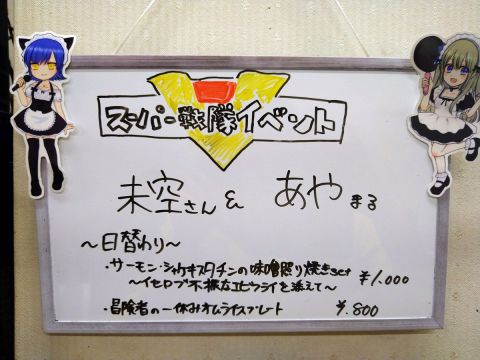 スーパー戦隊イベント
未空さん & あやまる
～日替わり～
・サーモン・シャケキスタチンの味噌照り焼きset ¥1,000
～イセロブ不様なエビフライを添えて～
・冒険者の一休みオムライスプレート ¥800